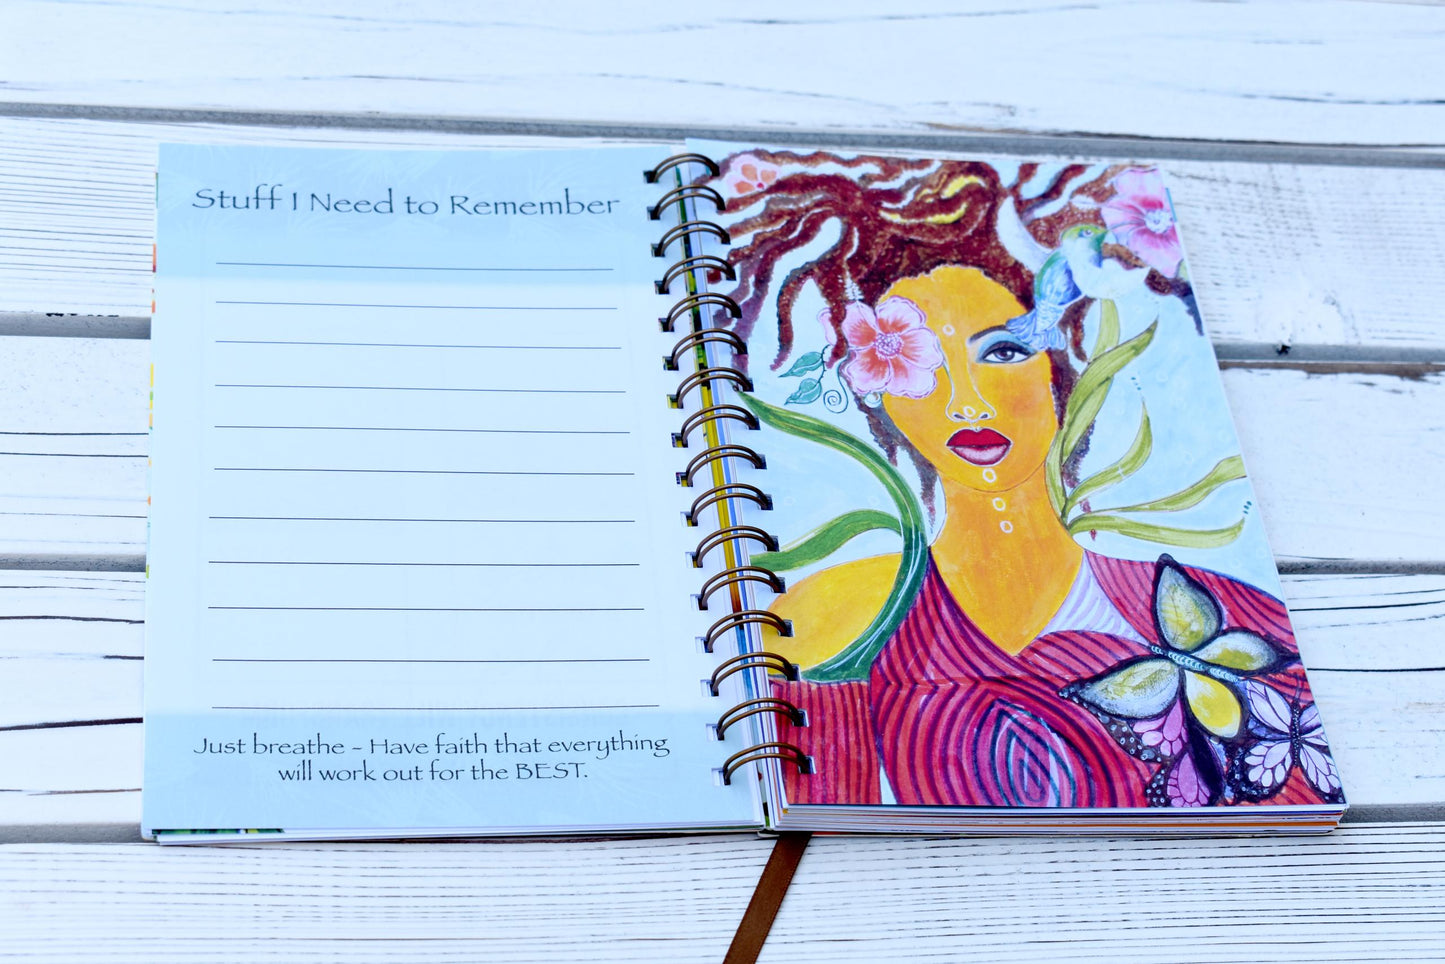 Stuff I Need to Remember
Just breathe – Have faith that everything
will work out for the BEST.